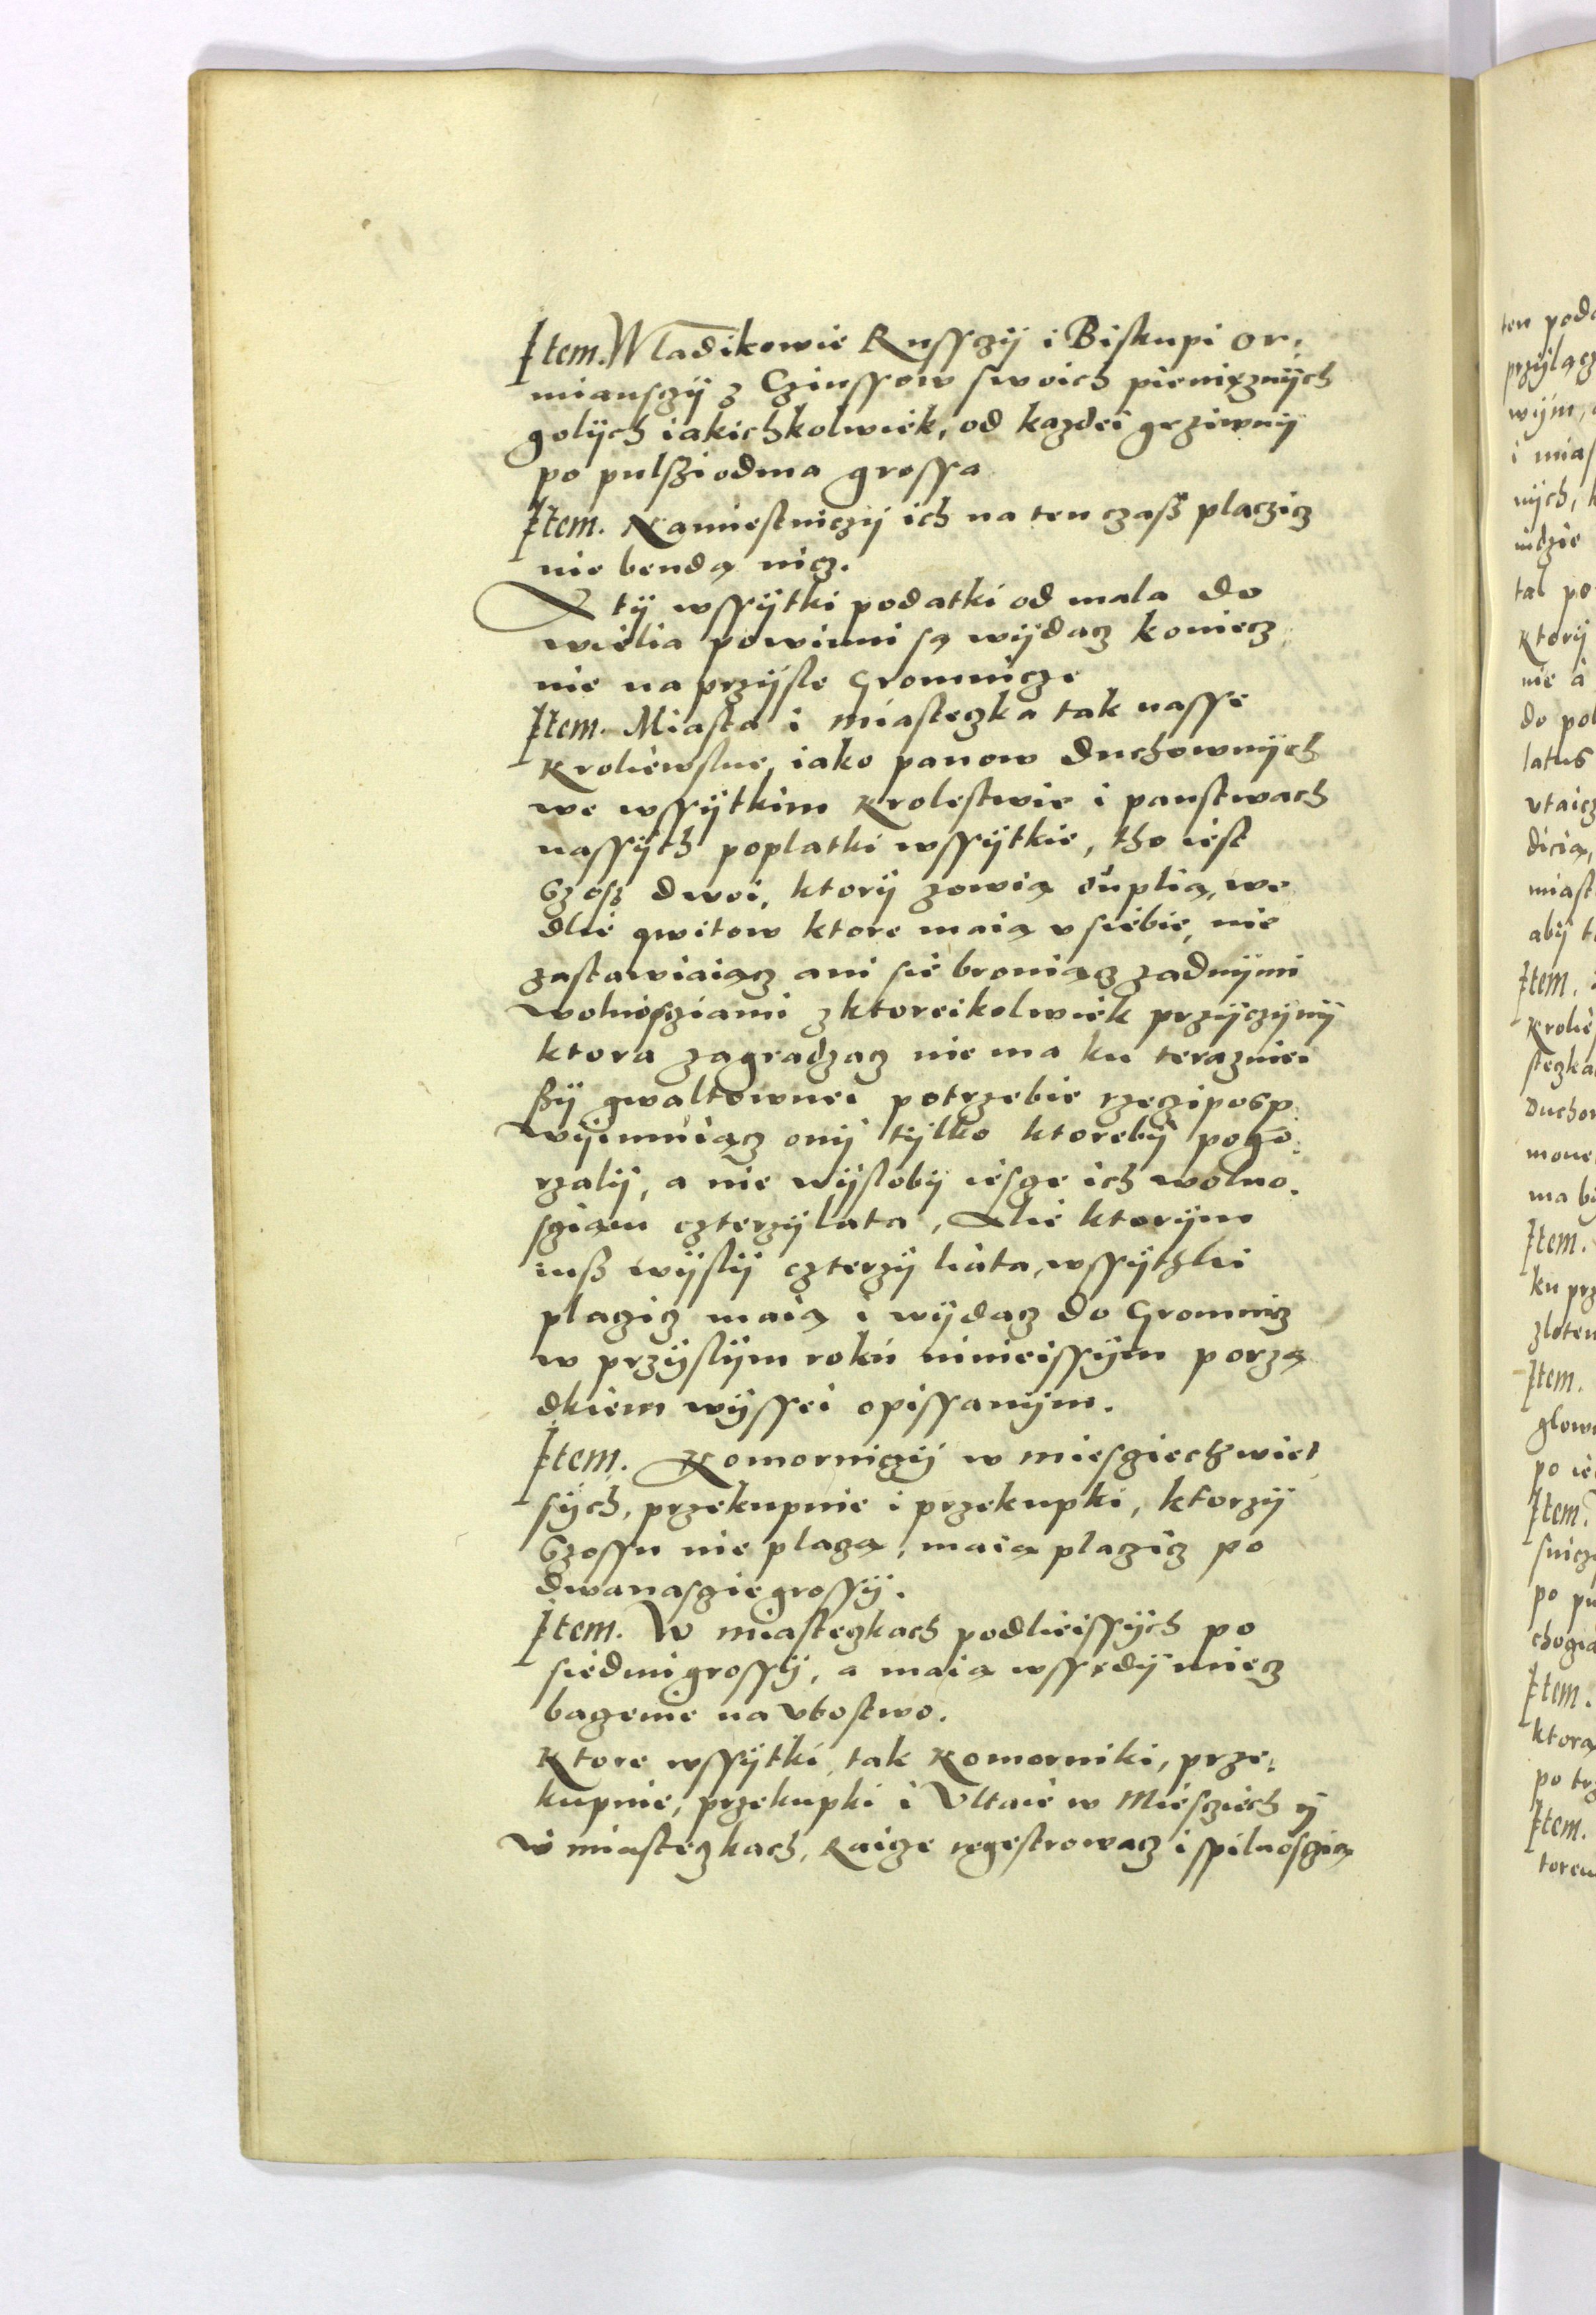 Item. Wladikowie Russczÿ i Biskupi or,
miansczÿ z Czinssow swoich pienięznÿch
golÿch iakichkolwiek, od kazdei grziwnÿ
po pulsziodma grossa
Item. Namiestniczÿ ich na ten czasz placzicz
nie bendą nicz.
A tÿ wssÿtki podatki od mala do
wielia powinni są wÿdacz koniecz
nie na przÿsle Gromnicze
Item. Miasta i miasteczka tak nasse
Kroliewskie, iako panow duchownÿch
we wssÿtkim Krolestwie i panstwach
nassÿch poplatki wssÿtkie, tho iest
Szosz dwoi, ktorÿ zowią duplią, we
dlie qwitow ktore maią v siebie, nie
zastawiaiącz ani sie broniącz zadnÿmi
wolnosziami z ktoreikolwiek przÿczÿnÿ
ktora zagradzacz nie ma ku teraznieі
szÿ gwaltownei potrzebie rzecziposp
wÿimuiącz onÿ tÿlko ktorebÿ pogo:
rzalÿ, a nie wÿslobÿ iesze ich wolno,
sziam czterzÿ lata, Alie ktorÿm
iusz wÿslÿ czterzÿ liata, wssÿtzki
plazicz maią i wÿdacz do Gromnicz
w przÿslÿm roku ninieissÿm porzą
dkiem wÿssei opissanÿm.
Item. Komorniczÿ w miesziech wiet
sÿch, przekupnie i przekupki, ktorzÿ
Szossu nie placzą, maią plazicz po
dwanaszie grossÿ.
Item. W miasteczkach podlieissÿch po
siedmi grossÿ, a maią wssędÿ miecz
baczenie na vbostwo.
Ktore wssÿtki, tak Komorniki, prze,
kupnie, przekupki i Vltaie w Miescziech ÿ
w miasteczkach, Raicze regestrowacz i spilnoszią
ten poda
przÿlącz
wÿm,
i mias
nÿch,
ndzie
tal po
Ktorÿ
nie a
do pol
latus
vtaicz
dicią,
miast
abÿ t
Item.
Krolie
steczka
Duchow
mone
ma bi
Item.
ku prz
zloten
Item.
glow
po ie
Item.
snicz
po pu
choga
Item.
ktorą
po trz
Item.
toren